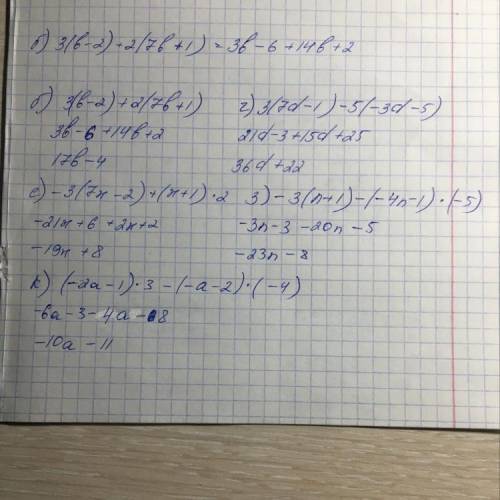 б) 3(b-2)+2(7b+1) = 3b-6+14b+2
б) 3(b-2)+2(7b+1) г) 3(7d-1)-5(-3d-5)
3b-6+14b+2 21d-3+15d+25
17b-4 36d+22
е) -3(7x-2)+(x+1)·2 з) -3(n+1)-(-4n-1)·(-5)
-21x+6+2x+2 -3n-3-20n-5
-19x+8 -23n-8
к) (-2a-1)·3-(-a-2)·(-4)
-6a-3-4a-8
-10a-11